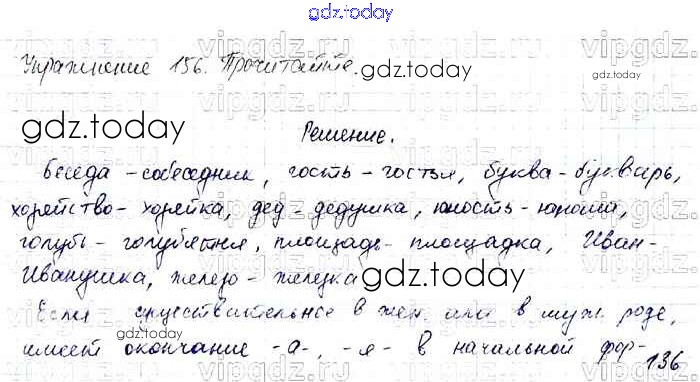 gdz.today
Упражнение 156. Прочитайте. gdz.today
gdz.today
Решение.
беседа - собеседник, гость - гостья, буква - букварь,
хозяйство - хозяйка, дед - дедушка, юность - юноша,
голубь - голубятня, площадь - площадка, Иван -
Иванушка, железо - железка gdz.today
Если существительное в жен. или в муж. роде,
gdz.today
имеет окончание -а-, -я- в начальной фор-
136